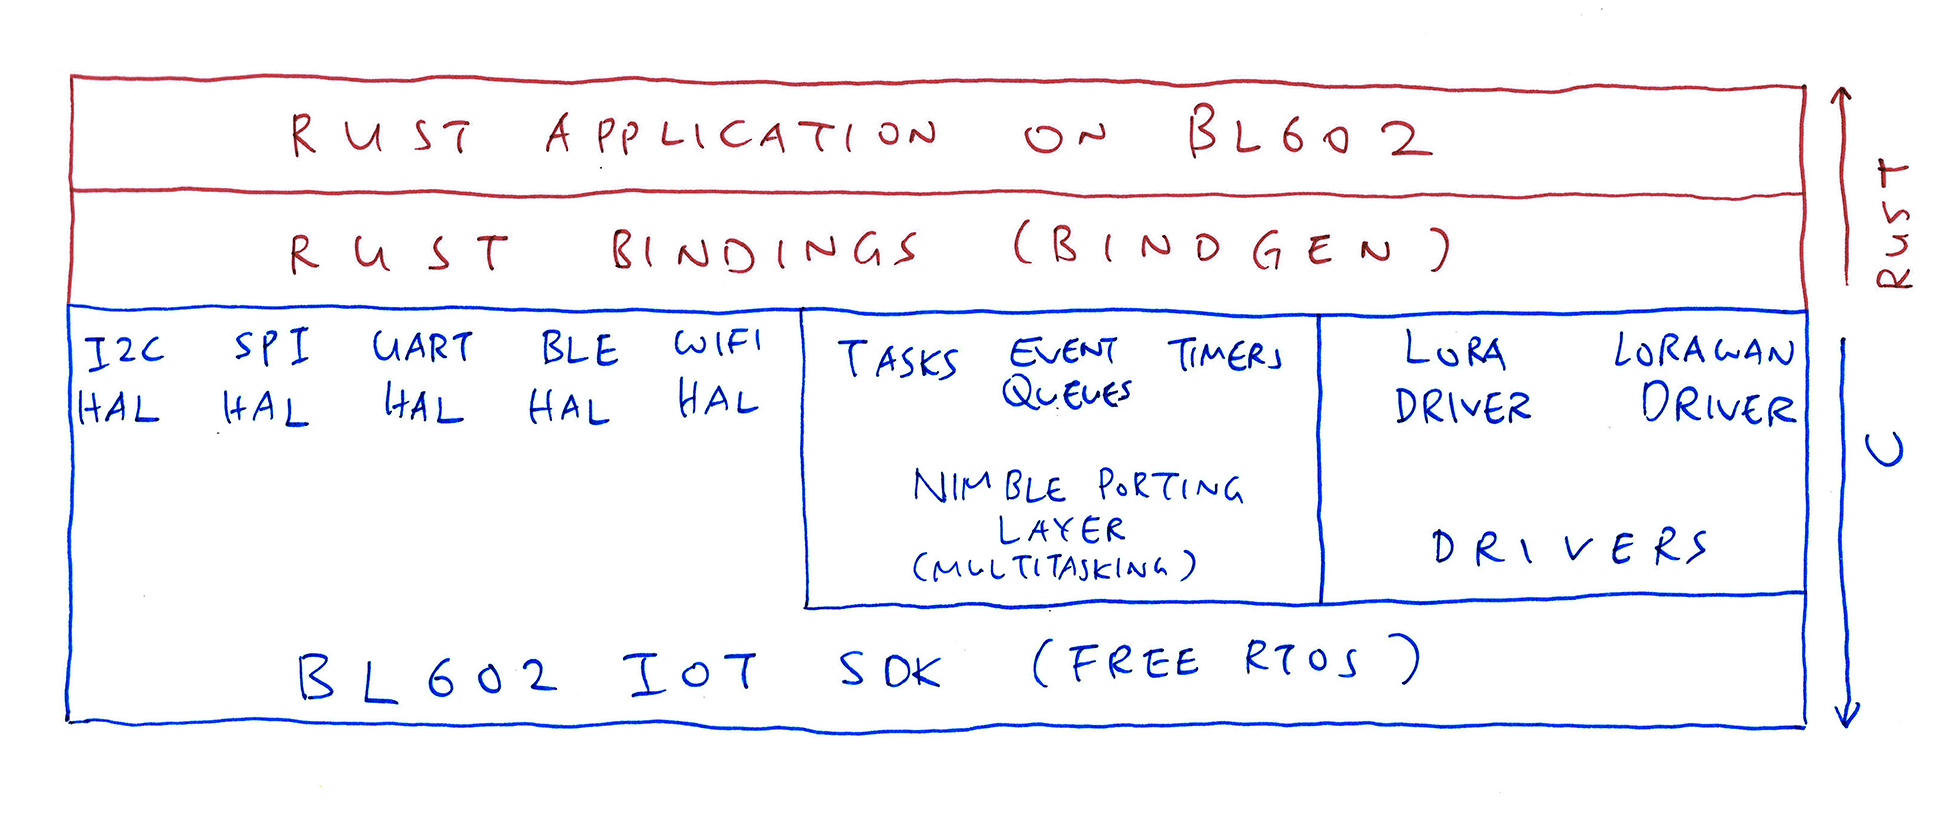 RUST APPLICATION ON BL602
RUST BINDINGS (BINDGEN)
RUST
I2C HAL
SPI HAL
UART HAL
BLE HAL
WIFI HAL
TASKS
EVENT QUEUES
TIMERS
NIMBLE PORTING
LAYER
(MULTITASKING)
LORA DRIVER
LORAWAN DRIVER
DRIVERS
C
BL602 IOT SDK (FREE RTOS)